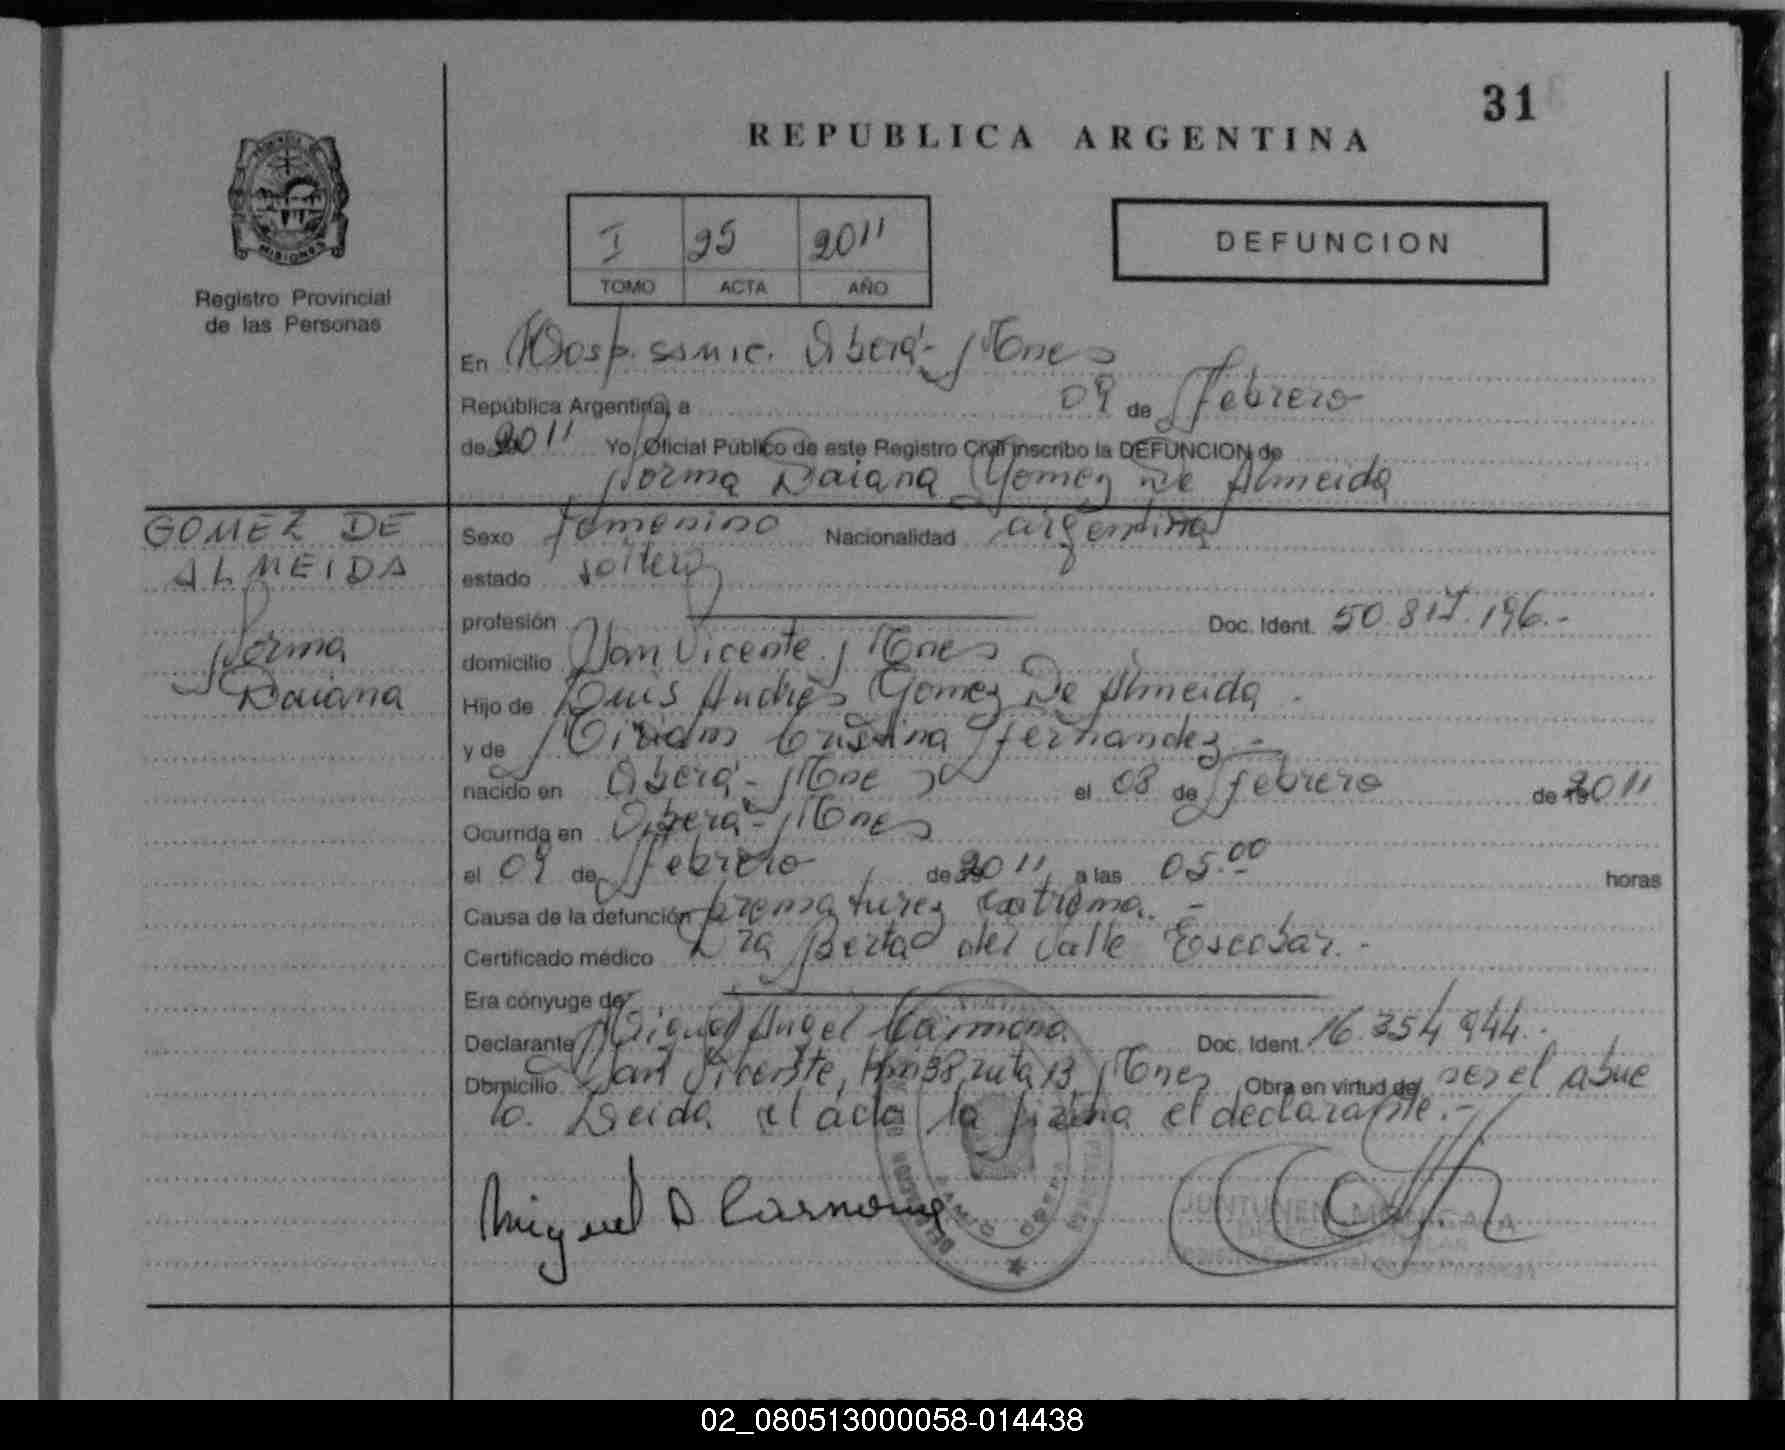 31
REPUBLICA ARGENTINA
I 25 2011
TOMO ACTA AÑO
DEFUNCION
MISIONES
Registro Provincial
de las Personas
En Hosp. samic. Oberá - Mnes
República Argentina, a 09 de Febrero
de 2011 Yo, Oficial Público de este Registro Civil inscribo la DEFUNCION de
Norma Daiana Gomez De Almeida
GOMEZ DE
ALMEIDA
Norma
Daiana
Sexo femenino Nacionalidad argentina
estado soltera
profesión Doc. Ident. 50.817.196.-
domicilio San Vicente. Mnes
Hijo de Luis Andrés Gomez De Almeida.
y de Miriam Cristina Fernandez.-
nacido en Oberá - Mnes el 08 de Febrero de 2011
Ocurrida en Oberá - Mnes
el 09 de Febrero de 2011 a las 05:00 horas
Causa de la defunción prematurez extrema.-
Certificado médico Dra Berta del Valle Escobar.-
Era cónyuge de
Declarante Miguel Angel Carmona Doc. Ident. 16.354.944.-
Domicilio San Vicente, Km 38, ruta 13 Mnes Obra en virtud de ser el abue
lo. Leida el acta la firma el declarante.-
Miguel A Carmona
02_080513000058-014438